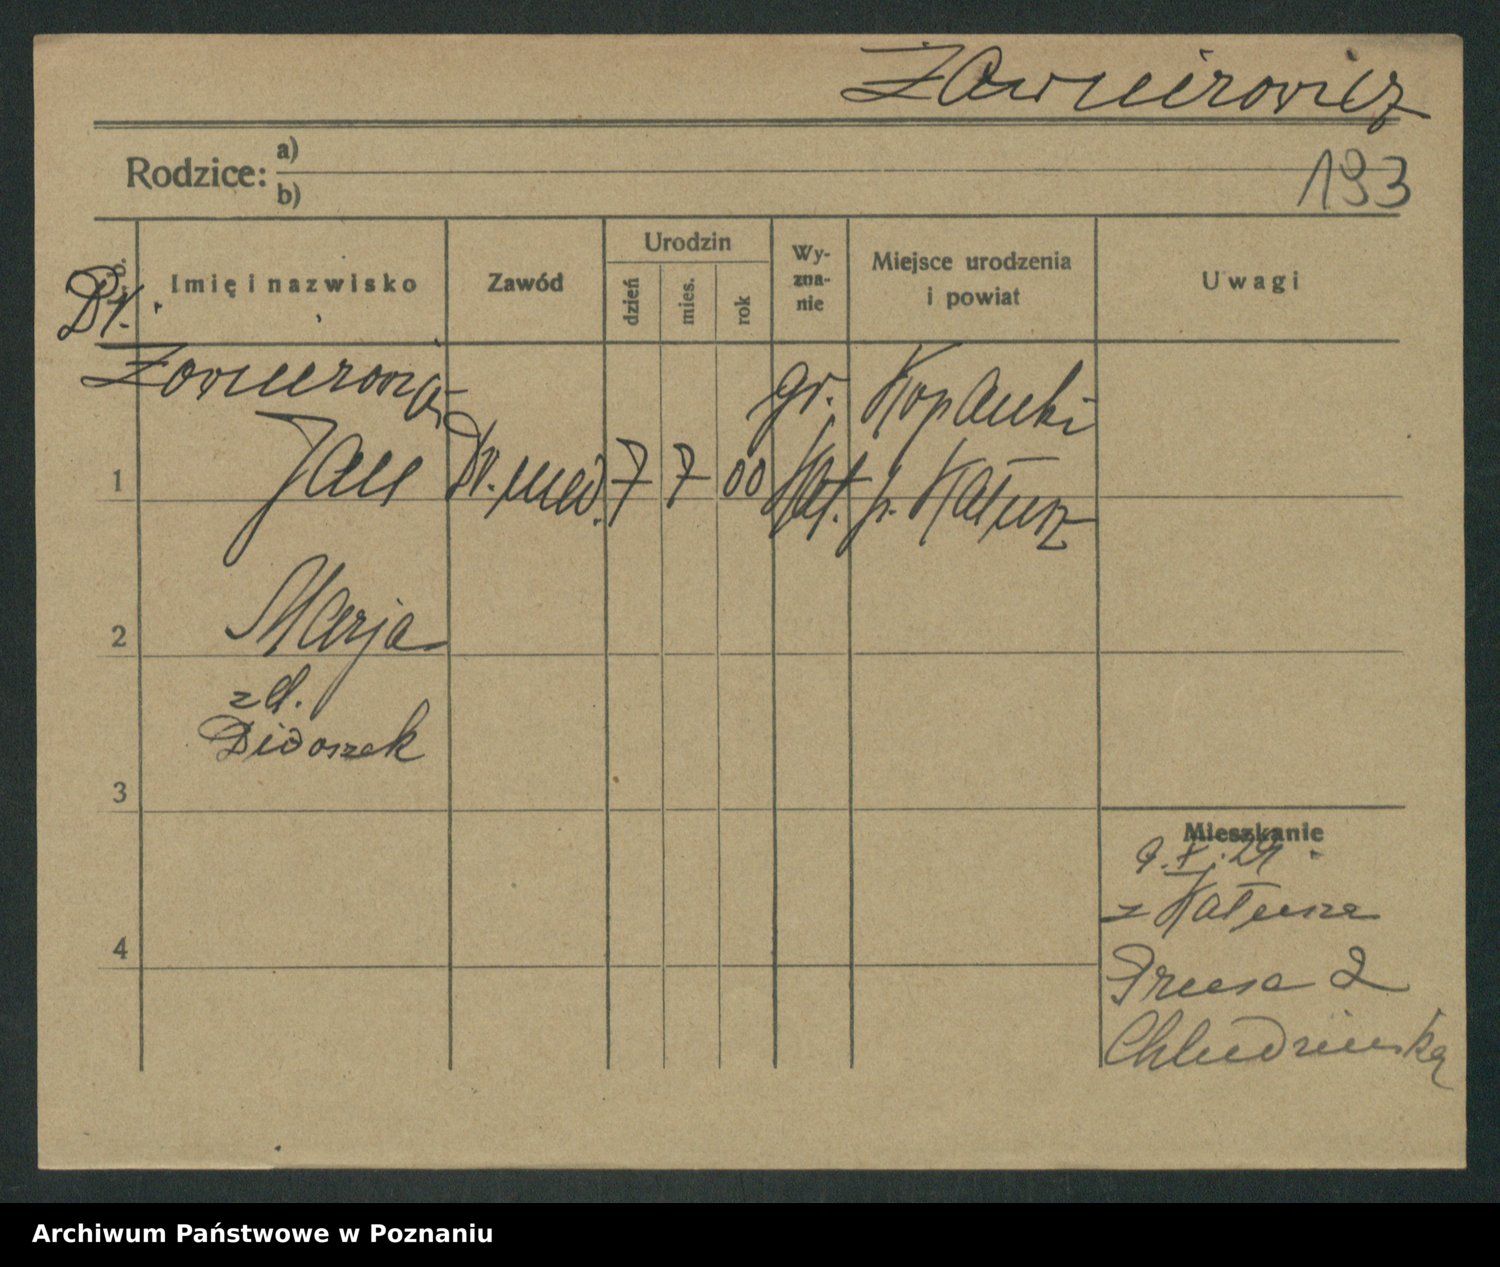 Zawnirowicz
Rodzice: a)
b)
193
Imię i nazwisko
Zawód
Urodzin
dzień
mies.
rok
Wy-
zna-
nie
Miejsce urodzenia
i powiat
Uwagi
Dr.
1
Jan Dr. med. 7 7 00
gr. Kopanki
Kat. p. Kałusz
2
Marja
zd.
Didoszek
3
4
Mieszkanie
z Kałusza
Prusa 2
Archiwum Państwowe w Poznaniu